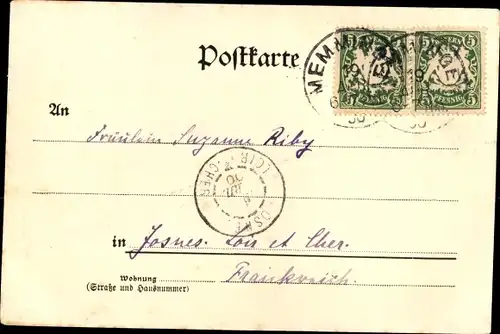 Postkarte
BAYERN
5 PFENNIG 5
BAYERN
5 PFENNIG 5
MEMMINGEN
An
Fräulein Suzanne Riby
LOIR-&-CHER
in Josnes. Loir et Cher.
Wohnung
(Straße und Hausnummer)
Frankreich.